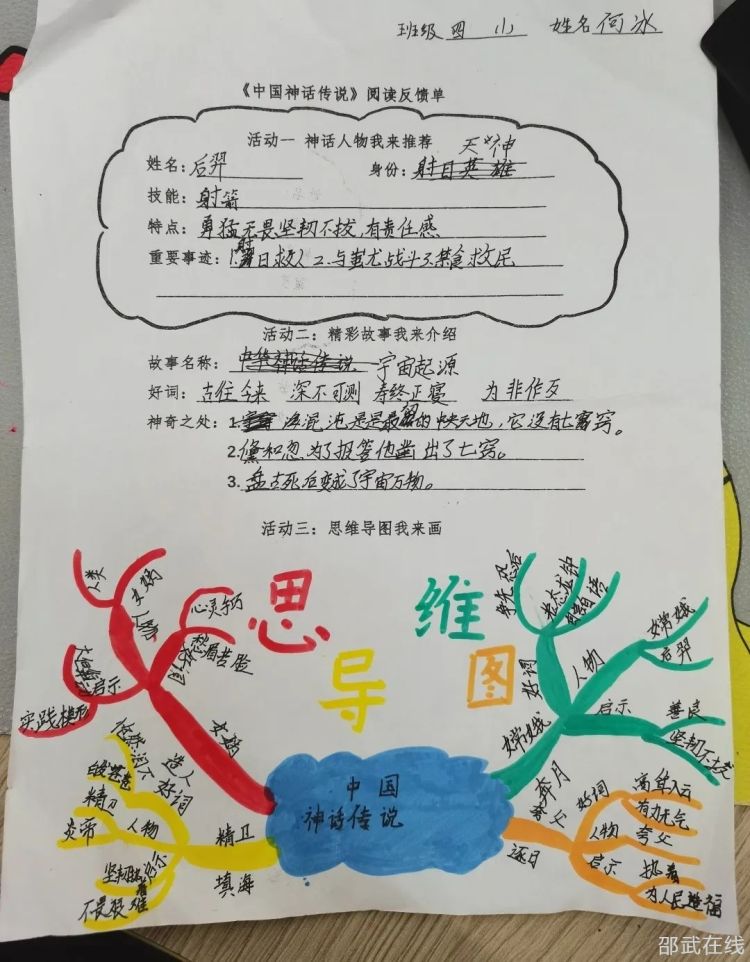 班级 四 (1) 姓名 何冰
《中国神话传说》阅读反馈单
活动一 神话人物我来推荐
天神
姓名：后羿 身份：射日英雄
技能：射箭
特点：勇猛无畏坚韧不拔，有责任感
重要事迹：1.射日救人 2.与蚩尤战斗 3.禁食救民
活动二：精彩故事我来介绍
故事名称：中华神话传说 宇宙起源
好词：古往今来 深不可测 寿终正寝 为非作歹
神奇之处：1. 混沌是最 的中央天地，它没有七窍。
2.儵和忽为了报答他凿出了七窍。
3.盘古死后变成了宇宙万物。
活动三：思维导图我来画
思
维
导
图
中国
神话传说
女娲
造人
人物
女娲
人类
好词
心灵手巧
愁眉苦脸
启示
实践
嫦娥
奔月
好词
争先恐后
老态龙钟
自言自语
人物
嫦娥
后羿
启示
善良
坚韧不拔
精卫
填海
好词
人物
精卫
炎帝
启示
坚韧
不畏艰难
夸父
逐日
好词
高耸入云
有力无气
人物
夸父
启示
执着
为人民造福
邵武在线